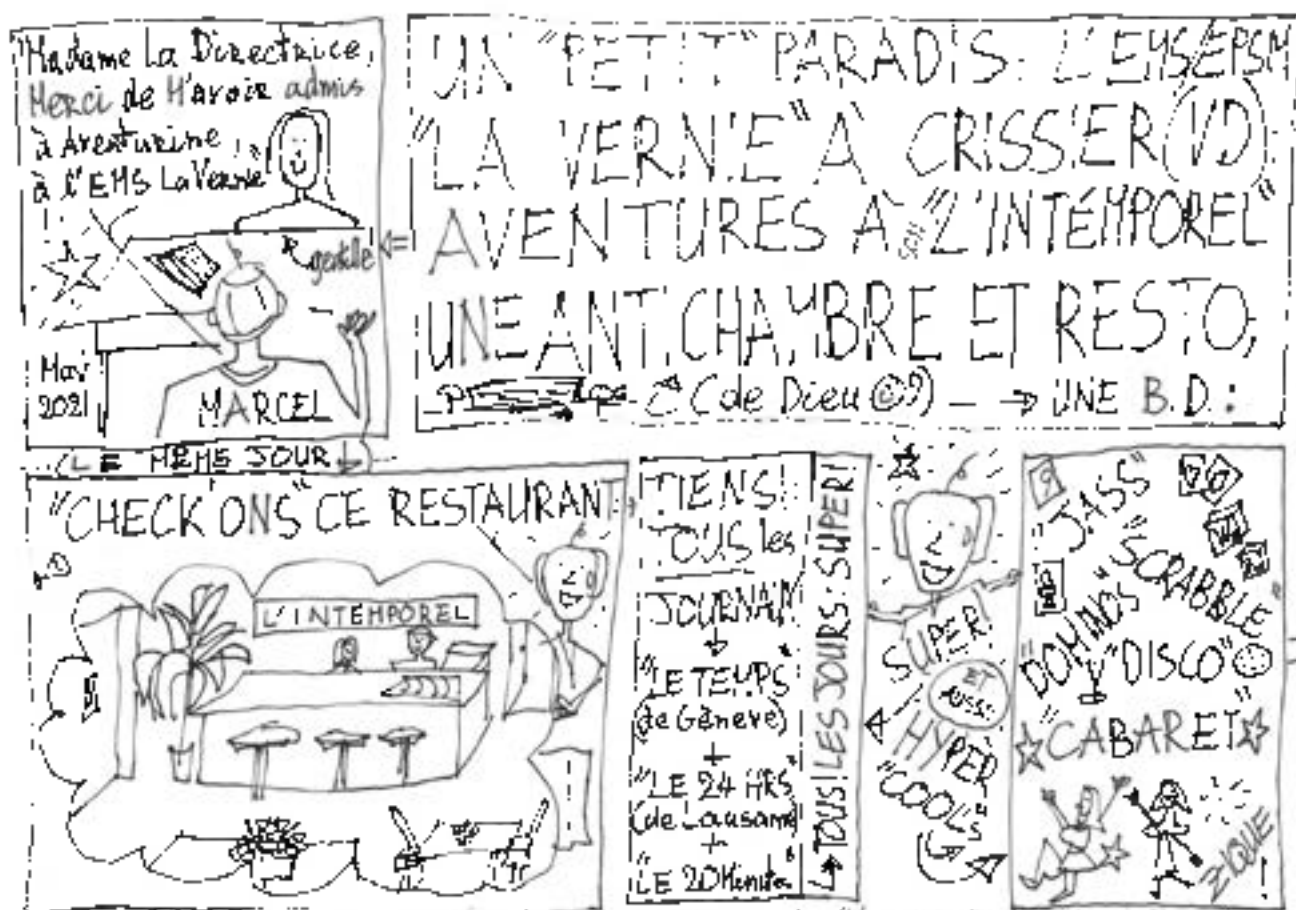 "Madame La Directrice,
Merci de M'avoir admis
à Aventurine
à l'EMS La Vernie!"
gentille
Mai
2021
MARCEL
UN "PETIT" PARADIS: L'EMS/EPSM
"LA VERNIE" À CRISSIER (VD):
AVENTURES À SON "L'INTEMPOREL"
UNE ANTICHAMBRE ET RESTO,
(de Dieu ☺?) → UNE B.D.:
(LE MÊME JOUR
"CHECK'ONS" CE RESTAURANT:
L'INTEMPOREL
TIENS!
TOUS les
JOURNAUX
"LE TEMPS"
(de Genève)
+
"LE 24 HRS"
(de Lausanne)
+
"LE 20 Minutes"
→ TOUS LES JOURS: SUPER!
SUPER!
ET
AUSSI:
HYPER
"COOLS"
"JASS"
"SCRABBLE"
"DOMINOS"
"DISCO"
"CABARET"
ZIQUE!